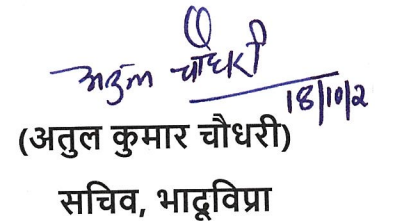 अतुल चौधरी
18/10/2
(अतुल कुमार चौधरी)
सचिव, भादूविप्रा